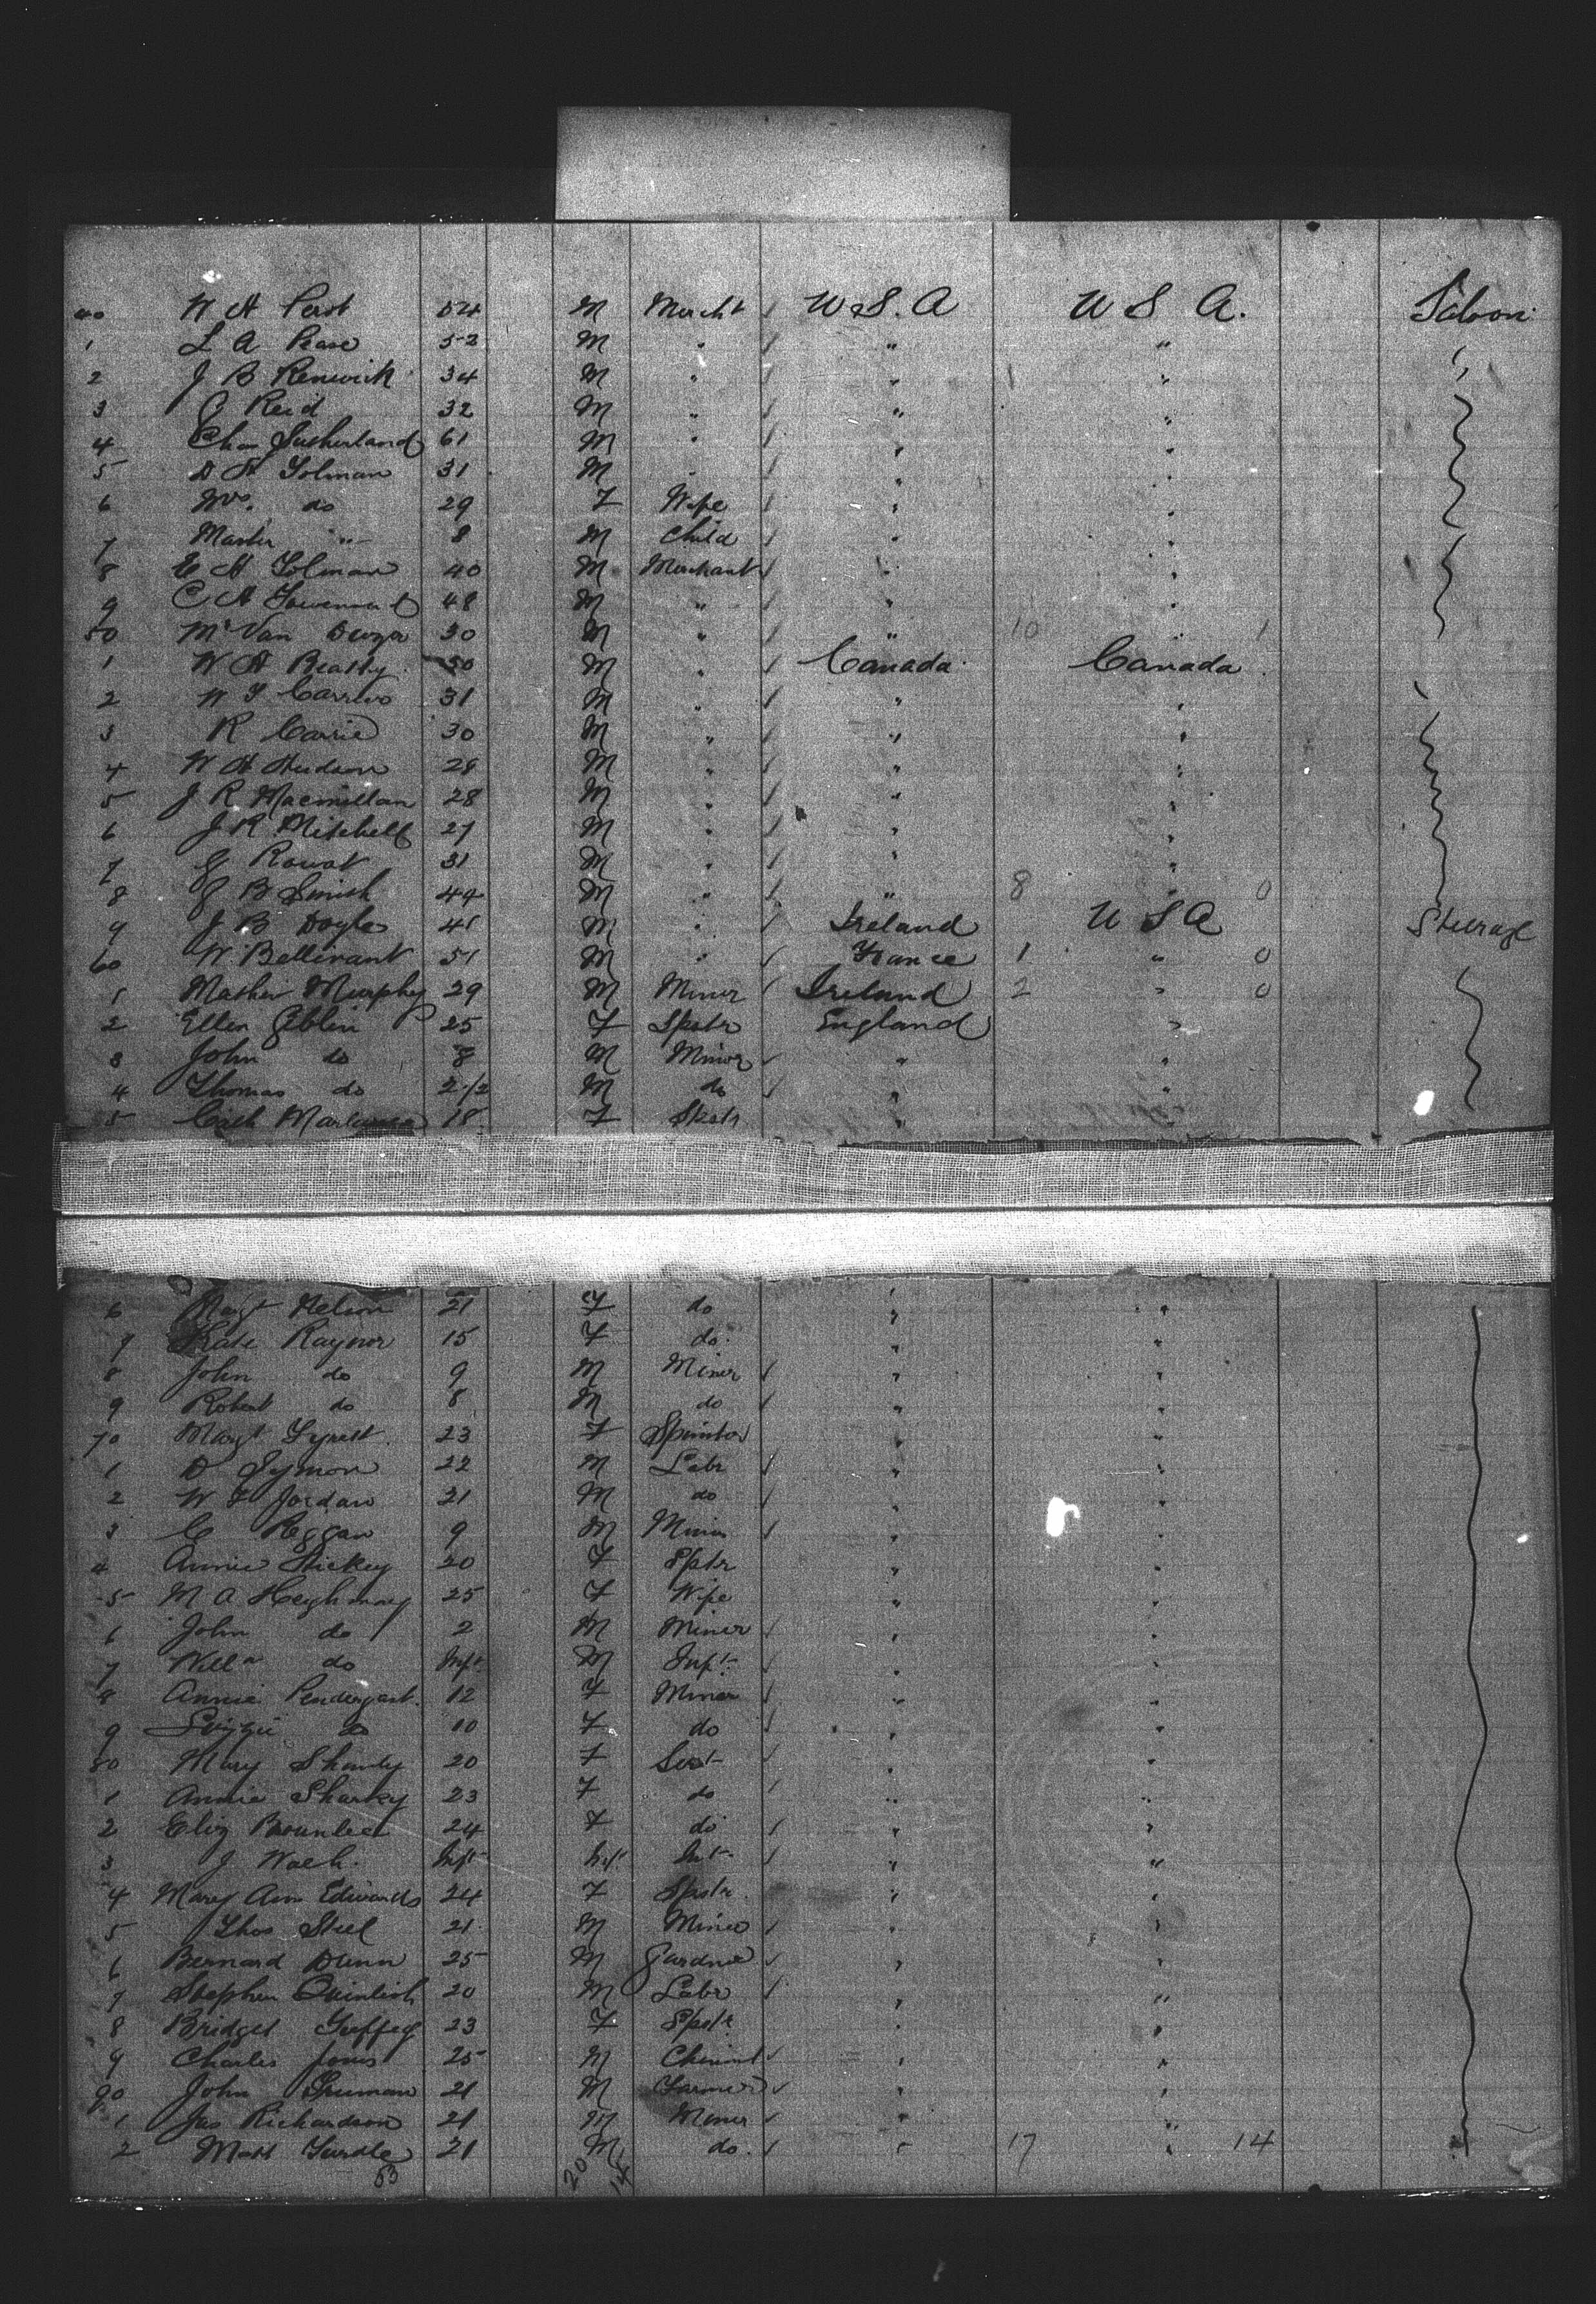 40 N A Perot 54 M Mercht U.S.A U S A. Saloon
1 L A Pease 52 M " " "
2 J B Renwick 34 M " " "
3 J Reid 32 M " " "
4 Chas Sutherland 61 M " " "
5 D A Tolman 31 M " " "
6 Mrs. do 29 F Wife " "
7 Master " 8 M Child " "
8 E A Tolman 40 M Merchant " "
9 C A 48 M " " "
50 Mr Van 30 M " " 10 " 1
1 W A Beatty 50 M " Canada Canada
2 W F 31 M " " "
3 R Carrie 30 M " " "
4 W A Hudson 28 M " " "
5 J R Macmillan 28 M " " "
6 J R Mitchell 27 M " " "
7 Rowat 31 M " " "
8 J B Smith 44 M " " 8 " 0
9 J B Doyle 41 M " Ireland U S A Steerage
60 W Bellivant 51 M " France 1 " 0
1 Mather Murphy 29 M Minor Ireland 2 " 0
2 Ellen Giblin 25 F Spstr England "
3 John do 8 M Minor " "
4 Thomas do 2 1/2 M do " "
5 18 F Spstr " "
6 Margt Nelson 21 F do " "
7 Kate Raynor 15 F do " "
8 John do 9 M Minor " "
9 Robert do 8 M do " "
70 Margt 23 F Spinster " "
1 D Symon 22 M Labr " "
2 W F Jordan 21 M do " "
3 C Heggan 9 M Minor " "
4 Annie Hickey 20 F Spstr " "
5 M A Heighway 25 F Wife " "
6 John do 2 M Minor " "
7 Willm do Inft M Inft " "
8 Annie Pendergast 12 F Minor " "
9 Lizzie do 10 F do " "
80 Mary Shanly 20 F Servt " "
1 Annie Sharkey 23 F do " "
2 Eliz Brownlee 24 F do " "
3 J Inft Inft Inft " "
4 Mary Ann Edwards 24 F Spstr " "
5 Thos Steel 21 M Miner " "
6 Bernard Dunn 25 M Gardner " "
7 Stephen 20 M Labr " "
8 Bridget 23 F Spstr " "
9 Charles Jones 25 M " "
90 John Truman 21 M Farmer " "
1 Jas Richardson 21 M Miner " "
2 Matt 21 M do. " 17 " 14
53 20 14